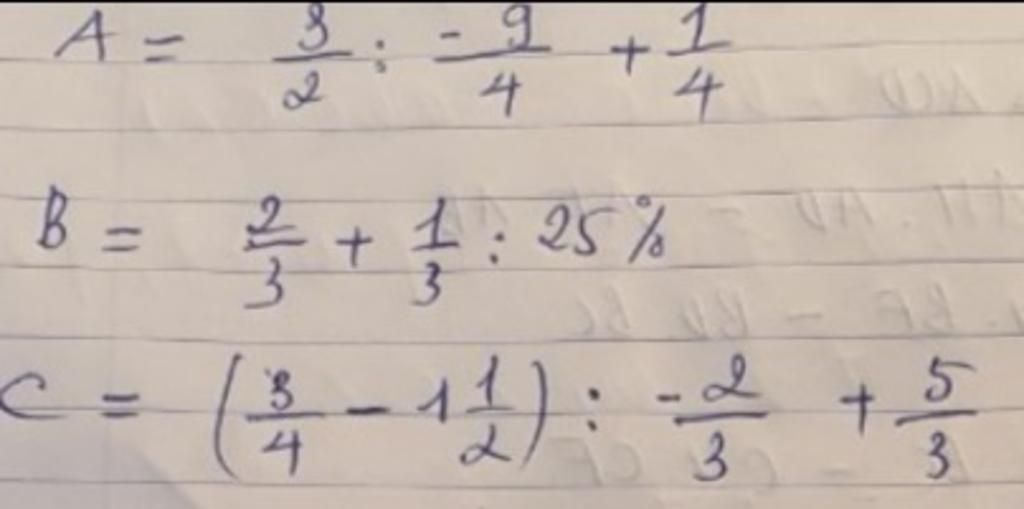 A = 3/2 : -9/4 + 1/4
B = 2/3 + 1/3 : 25%
C = (3/4 - 1 1/2) : -2/3 + 5/3